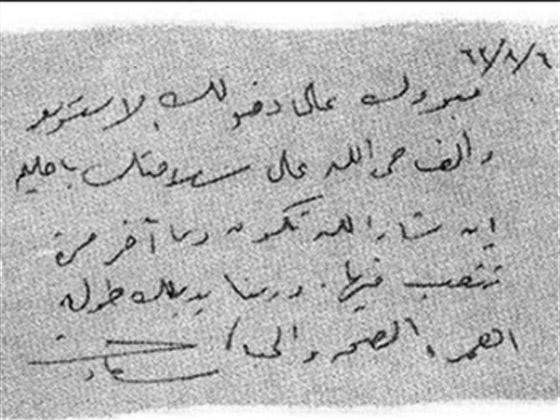 ٦٢/٨/٦
مبروك على دخولك الاستوديو
والف حمدالله على سلامتك ياحليم
إن شاء الله تكون دى آخر مرة
تتعب فيها. وربنا يديلك طولة
العمر، الصحة والحب /
سعاد